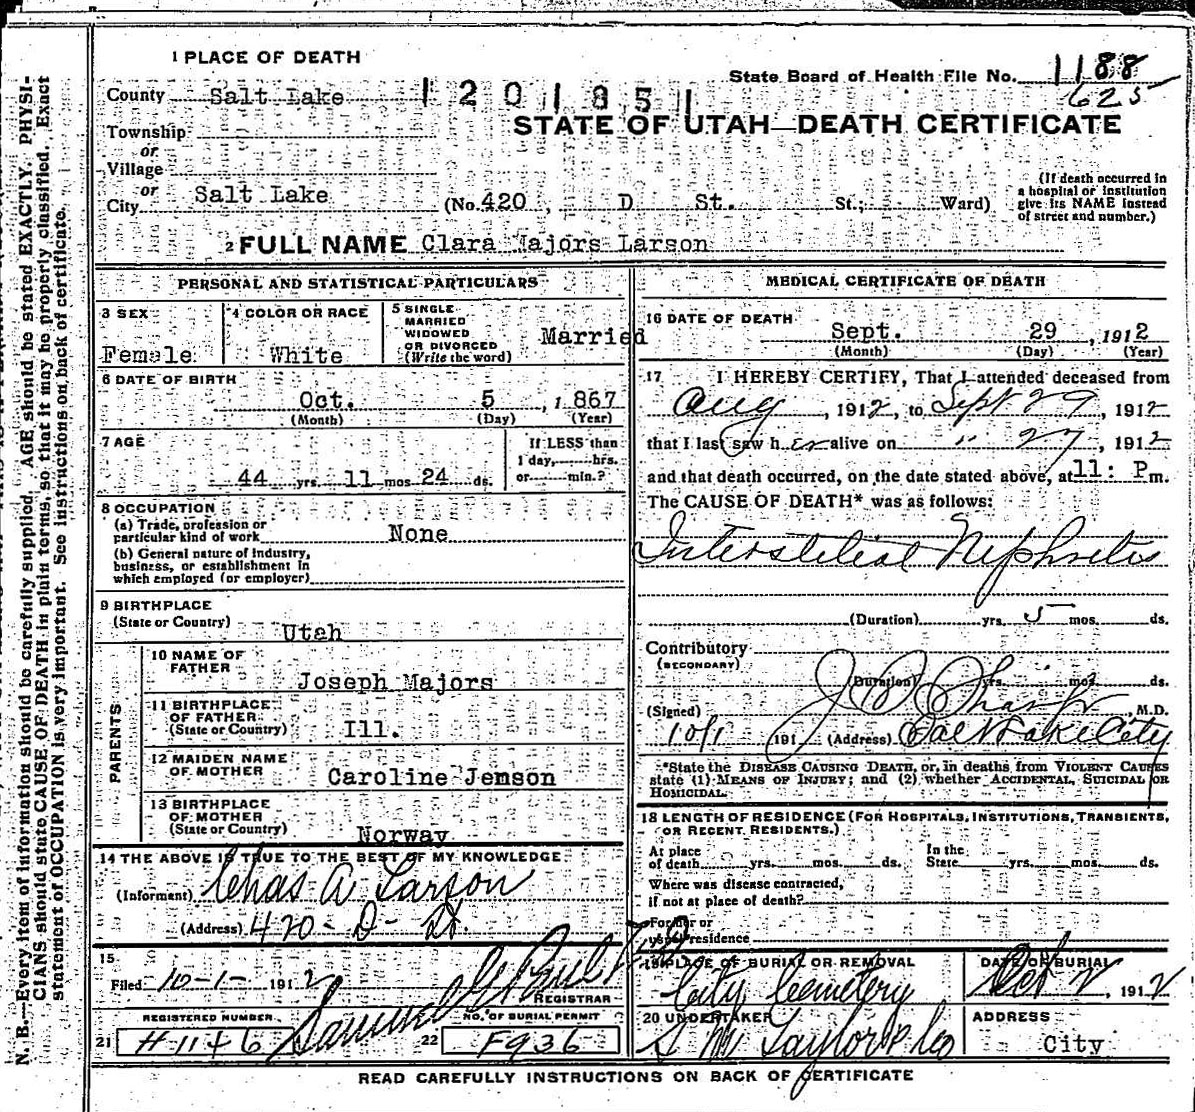 1 PLACE OF DEATH
State Board of Health File No. 1188
625
County Salt Lake
1201851
STATE OF UTAH—DEATH CERTIFICATE
Township
or
Village
or
City Salt Lake (No. 420, D St. St.; Ward)
(If death occurred in a hospital or institution give its NAME instead of street and number.)
2 FULL NAME Clara Majors Larson
PERSONAL AND STATISTICAL PARTICULARS
3 SEX
Female
4 COLOR OR RACE
White
5 SINGLE
MARRIED
WIDOWED
OR DIVORCED
(Write the word)
Married
6 DATE OF BIRTH
Oct. 5, 1867
(Month) (Day) (Year)
7 AGE
44 yrs. 11 mos. 24 ds.
If LESS than
1 day, hrs.
or min.?
8 OCCUPATION
(a) Trade, profession or
particular kind of work None
(b) General nature of industry,
business, or establishment in
which employed (or employer)
9 BIRTHPLACE
(State or Country)
Utah
PARENTS
10 NAME OF
FATHER
Joseph Majors
11 BIRTHPLACE
OF FATHER
(State or Country) Ill.
12 MAIDEN NAME
OF MOTHER Caroline Jemson
13 BIRTHPLACE
OF MOTHER
(State or Country) Norway
14 THE ABOVE IS TRUE TO THE BEST OF MY KNOWLEDGE
(Informant) Chas A Larson
(Address) 420 - D - St.
15
Filed 10-1- 1912
REGISTRAR
REGISTERED NUMBER
21 #1146
NO. OF BURIAL PERMIT
22 F936
MEDICAL CERTIFICATE OF DEATH
16 DATE OF DEATH
Sept. 29, 1912
(Month) (Day) (Year)
17 I HEREBY CERTIFY, That I attended deceased from
Aug, 1912, to Sept 29, 1912
that I last saw h er alive on " 27, 1912
and that death occurred, on the date stated above, at 11: P m.
The CAUSE OF DEATH* was as follows:
Interstitial Nephritis
(Duration) yrs. 5 mos. ds.
Contributory
(SECONDARY)
(Duration) yrs. mos. ds.
(Signed) J. , M.D.
10/1 191 (Address) Salt Lake City
*State the DISEASE CAUSING DEATH, or, in deaths from VIOLENT CAUSES
state (1) MEANS OF INJURY; and (2) whether ACCIDENTAL, SUICIDAL OR
HOMICIDAL.
18 LENGTH OF RESIDENCE (FOR HOSPITALS, INSTITUTIONS, TRANSIENTS,
OR RECENT RESIDENTS.)
At place
of death yrs. mos. ds.
In the
State yrs. mos. ds.
Where was disease contracted,
if not at place of death?
Former or
usual residence
19 PLACE OF BURIAL OR REMOVAL
City Cemetery
DATE OF BURIAL
Oct 2, 1912
20 UNDERTAKER
S M Taylor & Co
ADDRESS
City
READ CAREFULLY INSTRUCTIONS ON BACK OF CERTIFICATE
N. B.—Every item of information should be carefully supplied. AGE should be stated EXACTLY. PHYSI-
CIANS should state CAUSE OF DEATH in plain terms, so that it may be properly classified. Exact
statement of OCCUPATION is very important. See instructions on back of certificate.